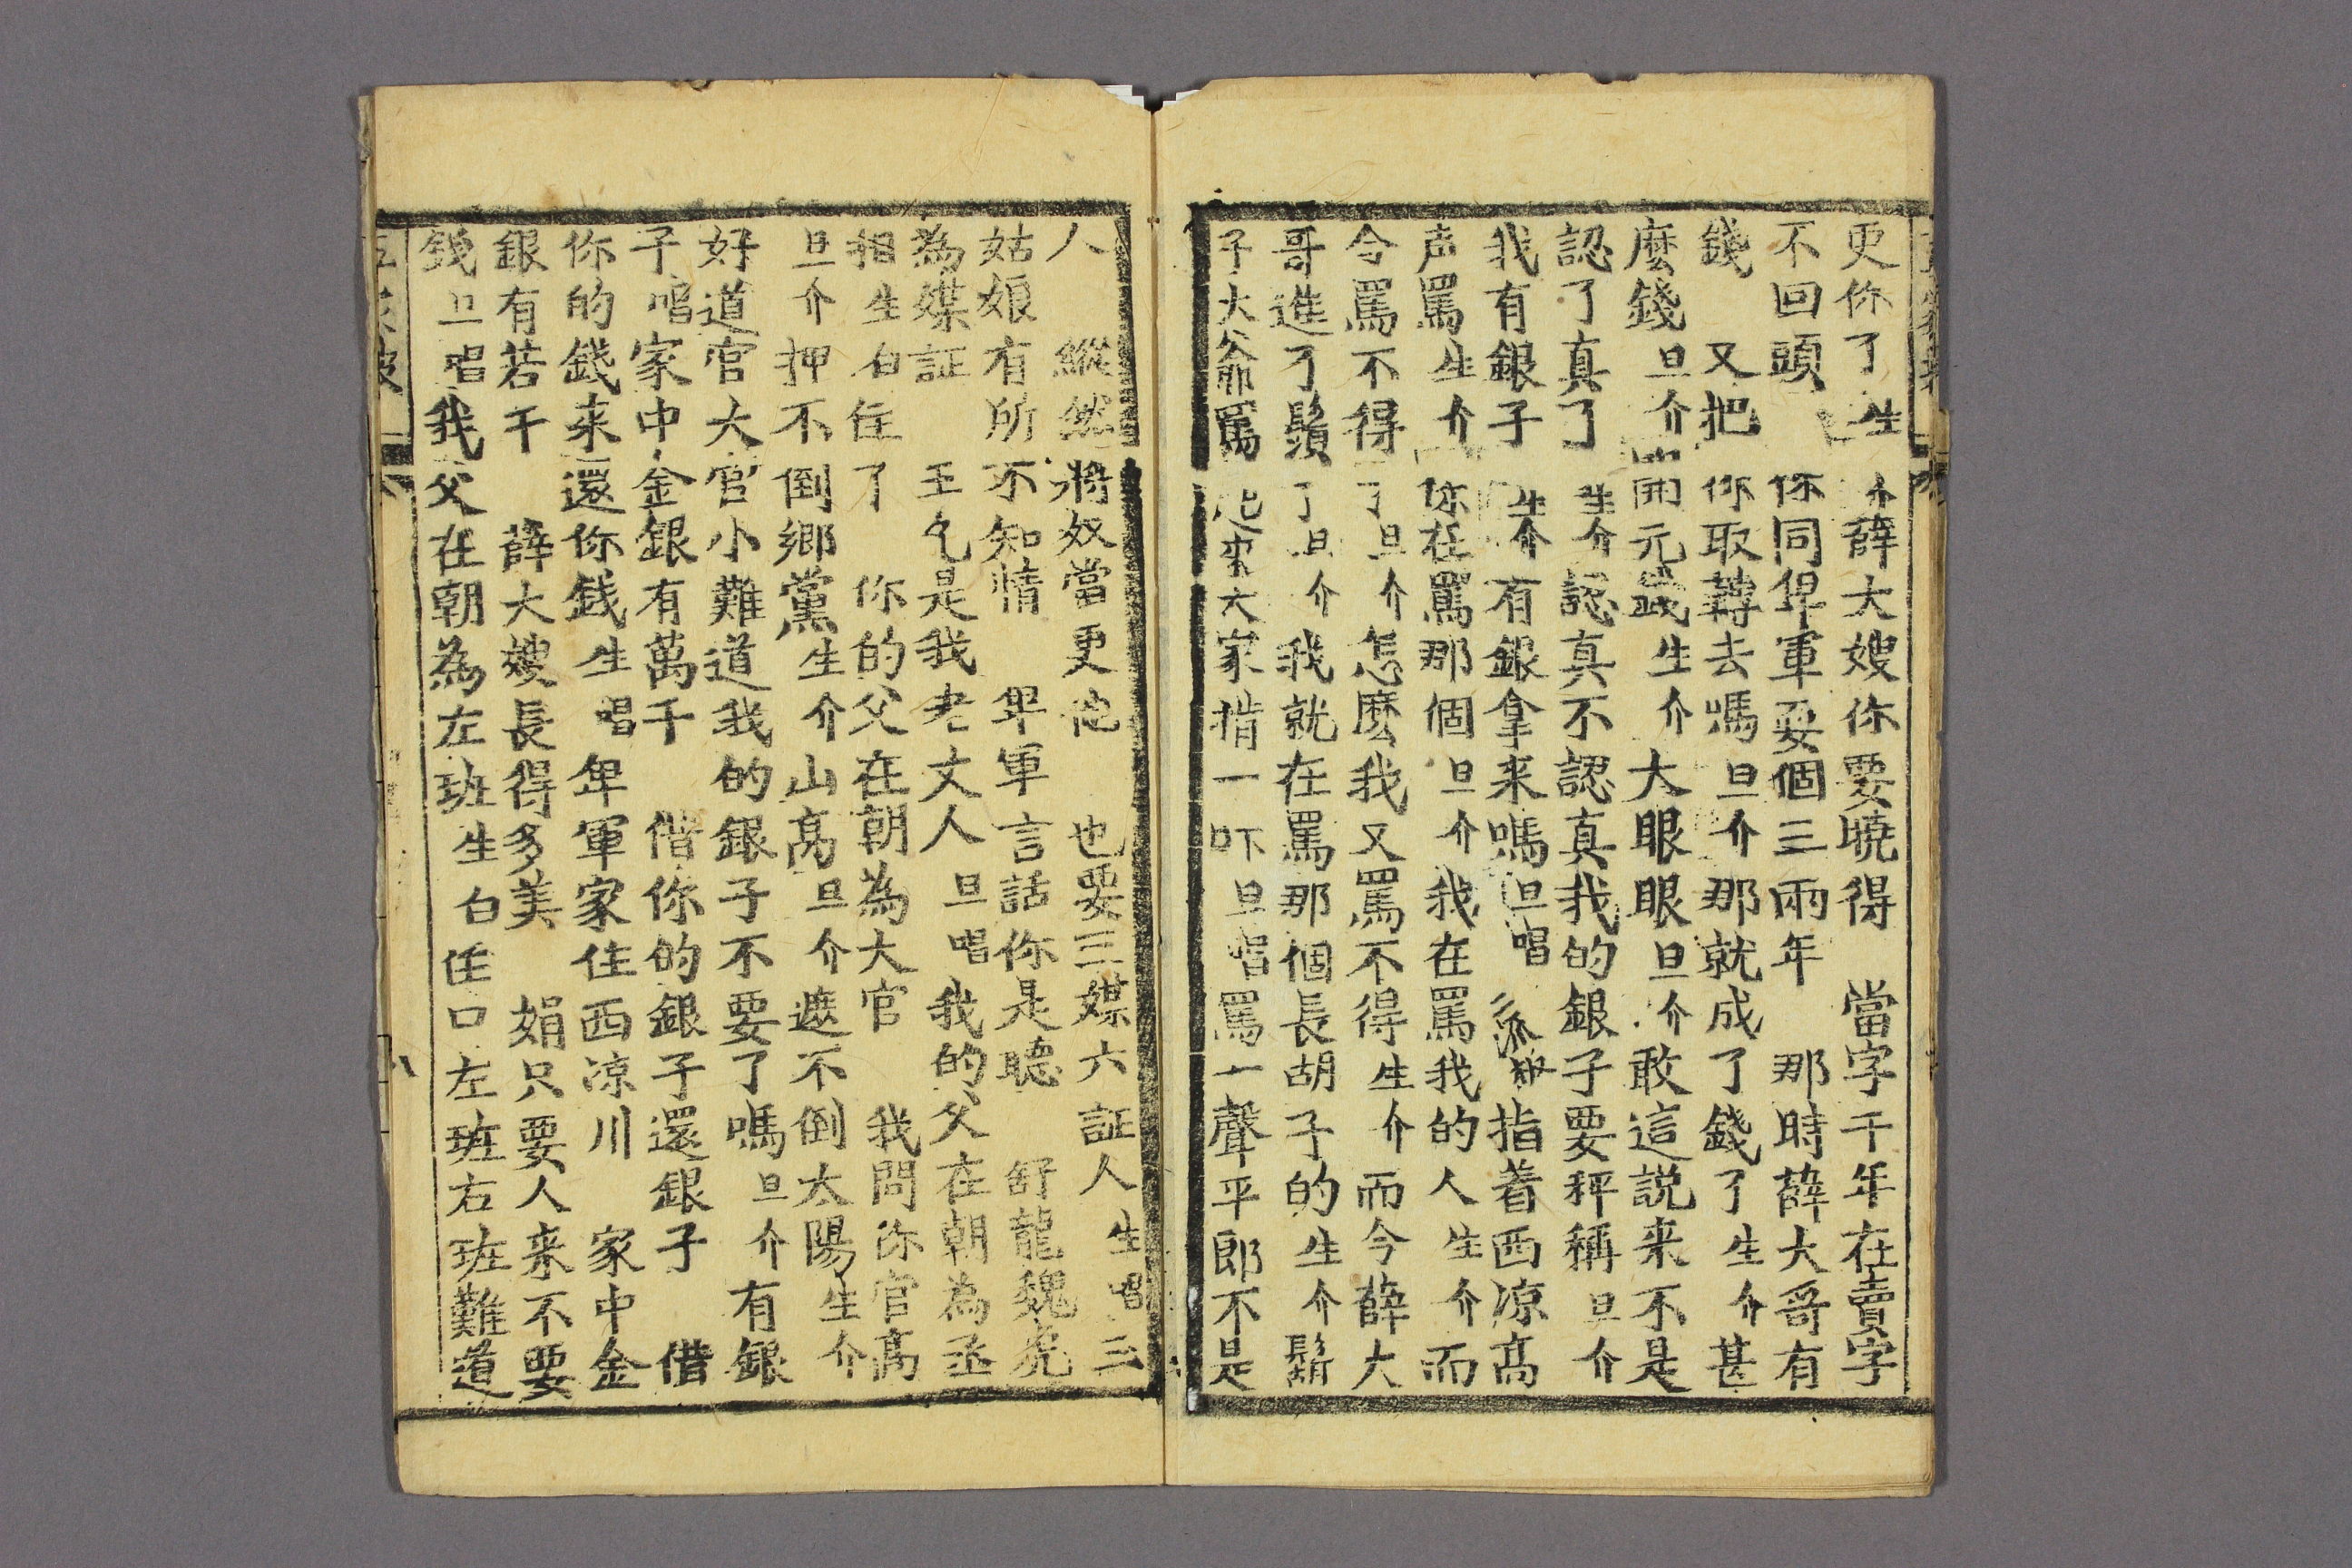 更你了生介薛大嫂你要曉得 當字千年在賣字
不回頭 你同卑軍耍個三兩年 那時薛大哥有
錢 又把你取轉去嗎旦介那就成了錢了生介甚
麼錢旦介開元錢生介大眼眼旦介敢這説来不是
認了真了生介認真不認真我的銀子要秤稱旦介
我有銀子生介有銀拿来嗎旦唱 指着西凉高
声罵生介你在罵那個旦介我在罵我的人生介而
今罵不得了旦介怎麼我又罵不得生介而今薛大
哥進了鬚了旦介我就在罵那個長胡子的生介鬍
子大爺罵起来大家揹一吓旦唱罵一聲平郎不是
人 縱然將奴當更他 也要三媒六証人生唱三
姑娘有所不知情 卑軍言話你是聽 舒龍魏虎
為媒証 王允是我老丈人旦唱我的父在朝為丞
相生白住了 你的父在朝為大官 我問你官高
旦介押不倒鄉黨生介山高旦介遮不倒太陽生介
好道官大官小難道我的銀子不要了嗎旦介有銀
子唱家中金銀有萬千 借你的銀子還銀子 借
你的錢来還你錢生唱卑軍家住西凉川 家中金
銀有若干 薛大嫂長得多美 娟只要人来不要
錢旦唱我父在朝為左班生白住口左班右班難道
八